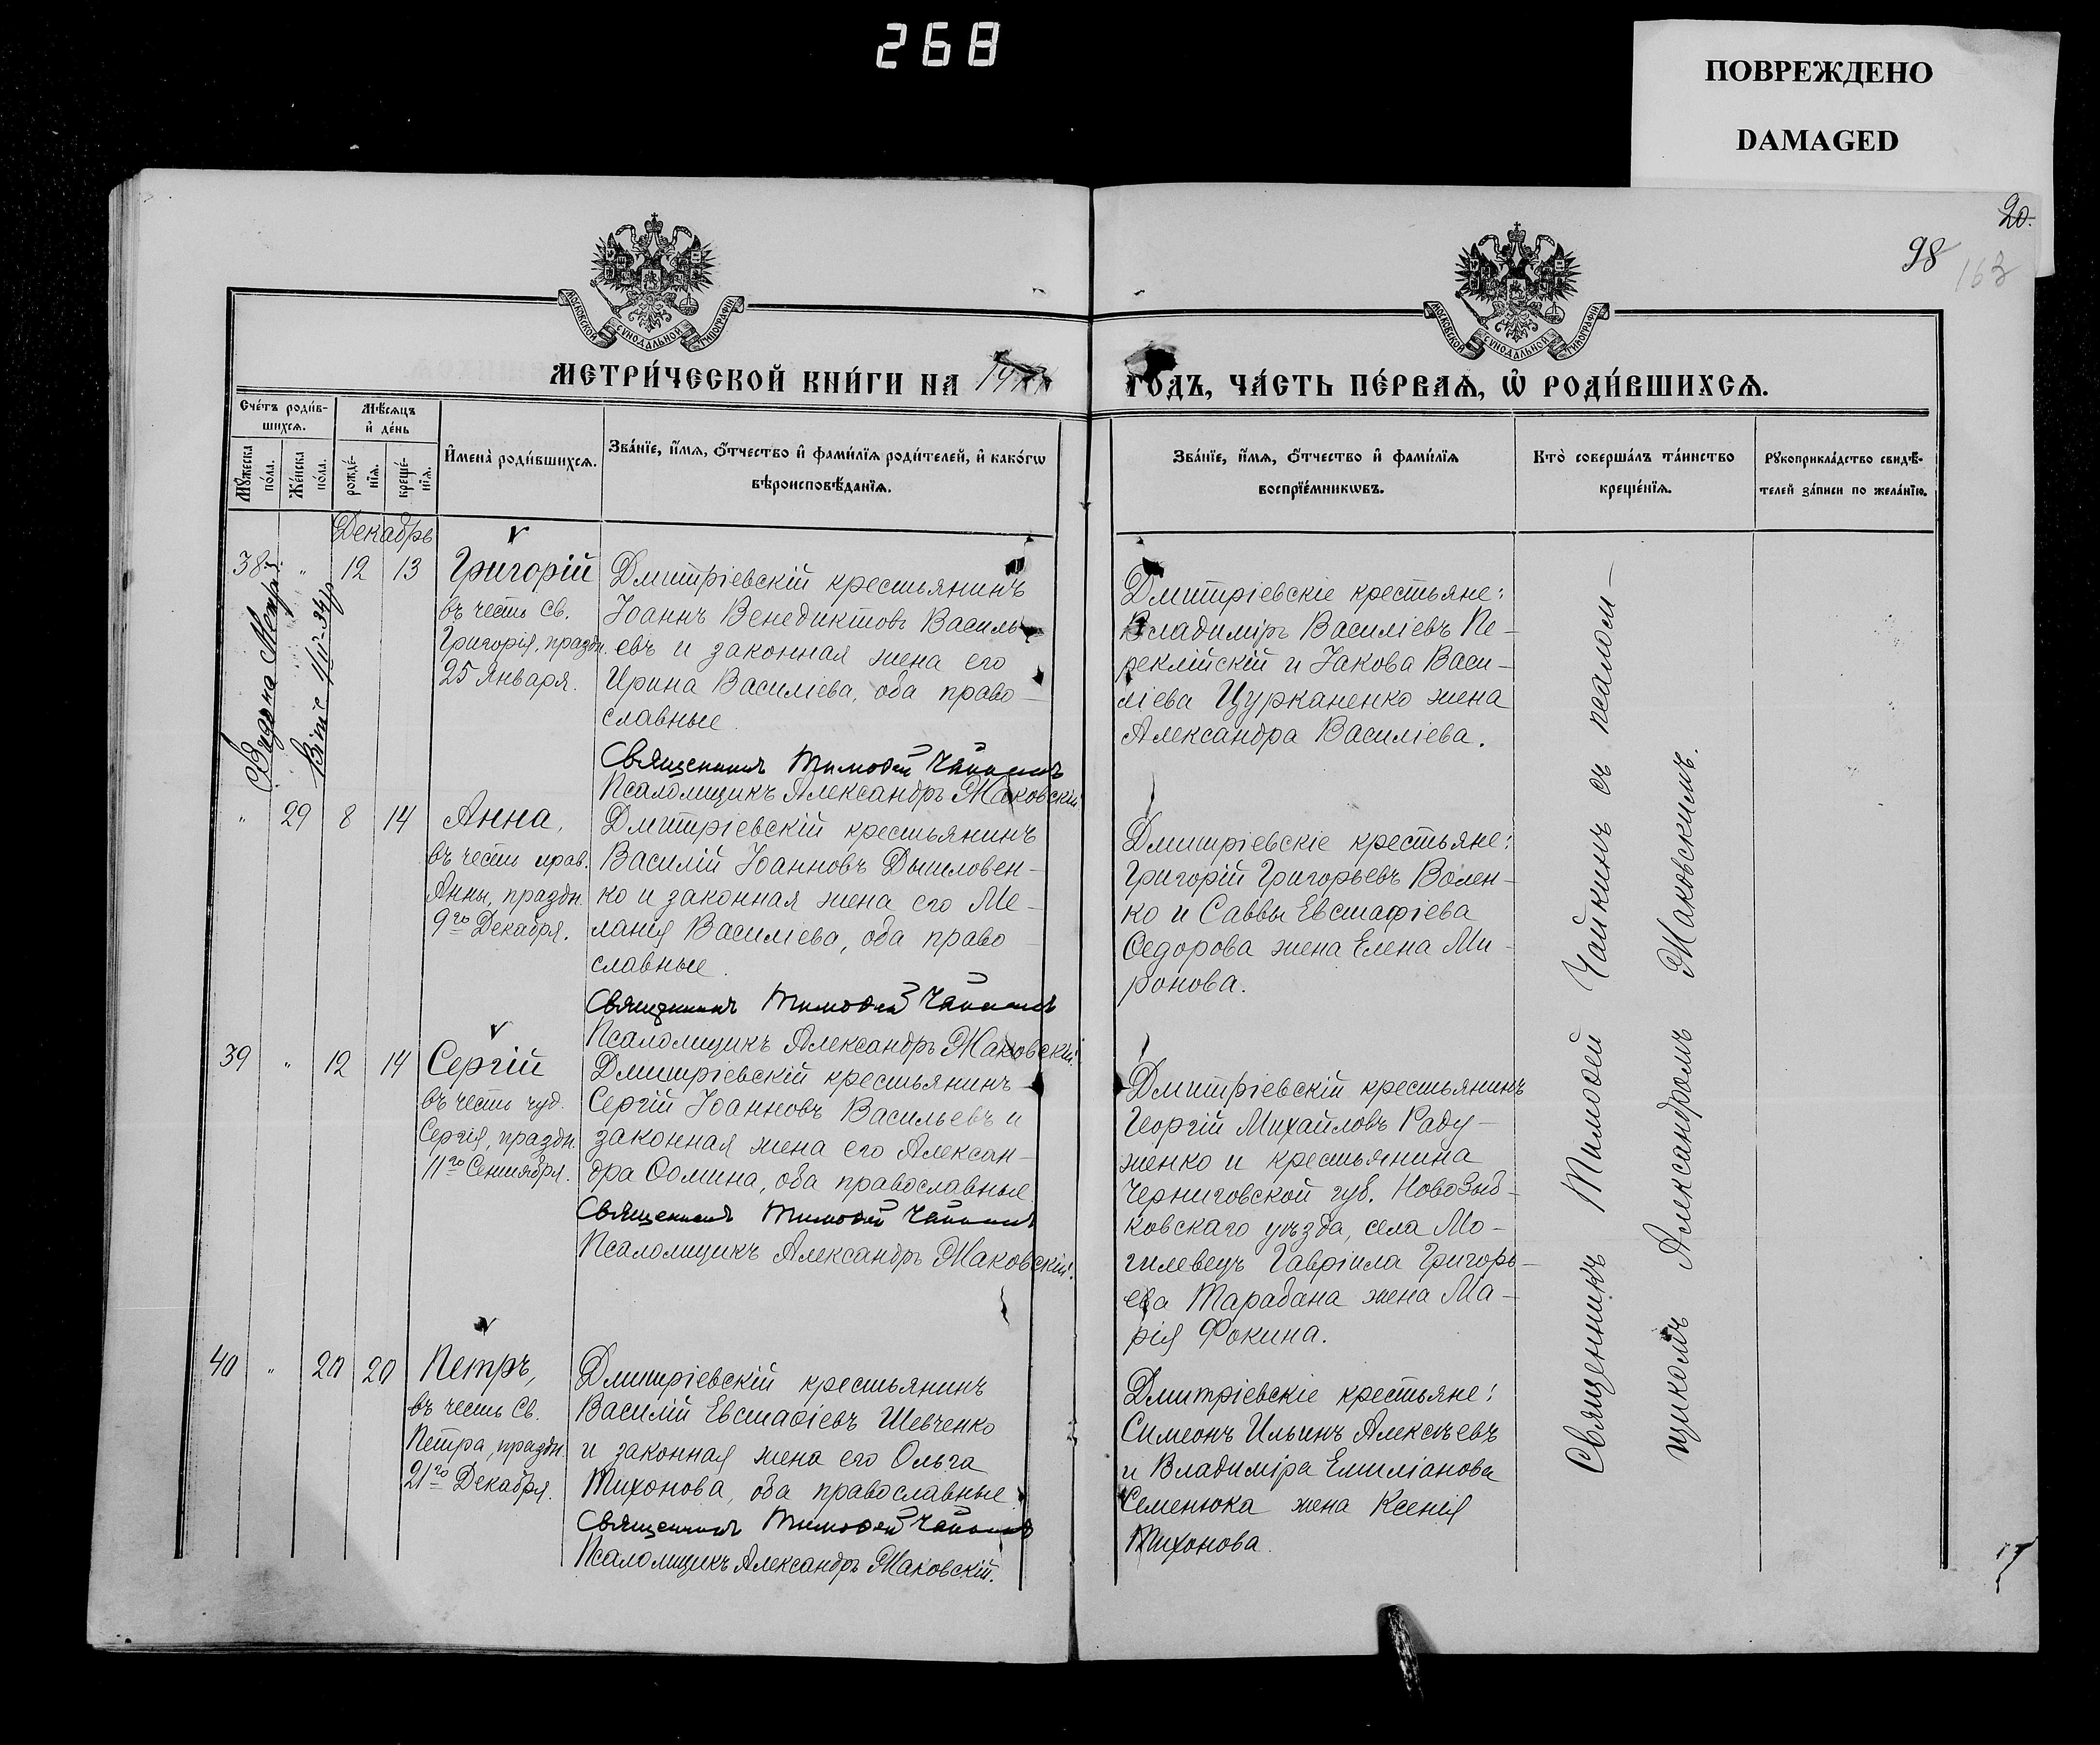 268
ПОВРЕЖДЕНО
DAMAGED
20.
98
163
МОСКОВСКОЙ СѴНОДАЛЬНОЙ ТИПОГРАФІИ
МОСКОВСКОЙ СѴНОДАЛЬНОЙ ТИПОГРАФІИ
МЕТРИ́ЧЕСКОЙ КНИ́ГИ НА
ГОДЪ, ЧА́СТЬ ПЕ́РВАѦ, Ѡ҆ РОДИ́ВШИХСѦ.
Сче́тъ роди́в-
шихсѧ.
Мѣ́сѧцъ
и҆ де́нь
Мꙋ́жеска
по́ла.
Же́нска
по́ла.
рожде́-
нїѧ.
креще́-
нїѧ.
И҆мена̀ роди́вшихсѧ.
Зва́нїе, и҆́мѧ, ѻ҆́тчество и҆ фами́лїѧ роди́телей, и҆ како́гѡ
вѣроисповѣ́данїѧ.
Зва́нїе, и҆́мѧ, ѻ҆́тчество и҆ фами́лїѧ
воспрїе́мникѡвъ.
Кто̀ соверша́лъ та́инство
креще́нїѧ.
Рꙋкоприкла́дство свидѣ́-
телей за́писи по жела́нїю.
Декабрь
38 " 12 13 Григорій
въ честь св.
Григорія, праздн.
25 Января.
Дмитріевскій крестьянинъ
Іоаннъ Венедиктовъ Василь-
евъ и законная жена его
Ирина Василіева, оба право-
славные
Священникъ Тимоѳей Чайкинъ
Псаломщикъ Александръ Маковскій
Дмитріевскіе крестьяне:
Владиміръ Василіевъ Пе-
реклійскій и Іакова Васи-
ліева Цурканенко жена
Александра Василіева.
" 29 8 14 Анна,
въ честь прав.
Анны, праздн.
9го Декабря.
Дмитріевскій крестьянинъ
Василій Іоанновъ Дышловен-
ко и законная жена его Ме-
ланія Василіева, оба право-
славные.
Священникъ Тимоѳей Чайкинъ
Псаломщикъ Александръ Маковскій
Дмитріевскіе крестьяне:
Григорій Григорьевъ Волен-
ко и Саввы Евстафіева
Ѳедорова жена Елена Ми-
ронова.
39 " 12 14 Сергій
въ честь чуд.
Сергія, праздн.
11го Сентября.
Дмитріевскій крестьянинъ
Сергій Іоанновъ Васильевъ и
законная жена его Алексан-
дра Ѳомина, оба православные
Священникъ Тимоѳей Чайкинъ
Псаломщикъ Александръ Маковскій.
Дмитріевскій крестьянинъ
Георгій Михайловъ Раду-
женко и крестьянина
Черниговской губ. Новозыб-
ковскаго уѣзда, села Мо-
гилевецъ Гавріила Григорь-
ева Тарабана жена Ма-
рія Фокина.
40 " 20 20 Петръ,
въ честь Св.
Петра, праздн.
21го Декабря.
Дмитріевскій крестьянинъ
Василій Евстафіевъ Шевченко
и законная жена его Ольга
Тихонова, оба православные
Священникъ Тимоѳей Чайкинъ
Псаломщикъ Александръ Маковскій.
Дмитріевскіе крестьяне:
Симеонъ Ильинъ Алексѣевъ
и Владиміра Емиліанова
Семенюка жена Ксенія
Тихонова.
Священникъ Тимоѳей Чайкинъ съ псалом-
щикомъ Александромъ Маковскимъ.